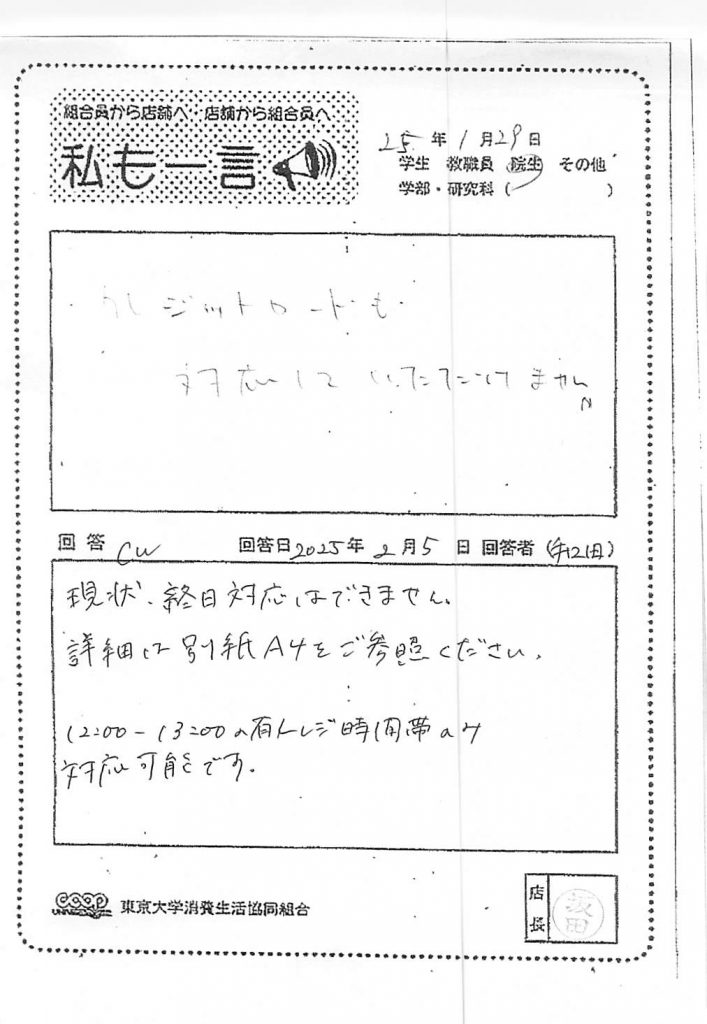 組合員から店舗へ・店舗から組合員へ
私も一言
25年1月29日
学生 教職員 院生 その他
学部・研究科( )
クレジットカードも
対応していただけません
回答 回答日2025年2月5日 回答者
現状、終日対応はできません。
詳細は別紙A4をご参照ください。
12:00-13:00の有人レジ時間帯のみ
対応可能です。
coop 東京大学消費生活協同組合
店長